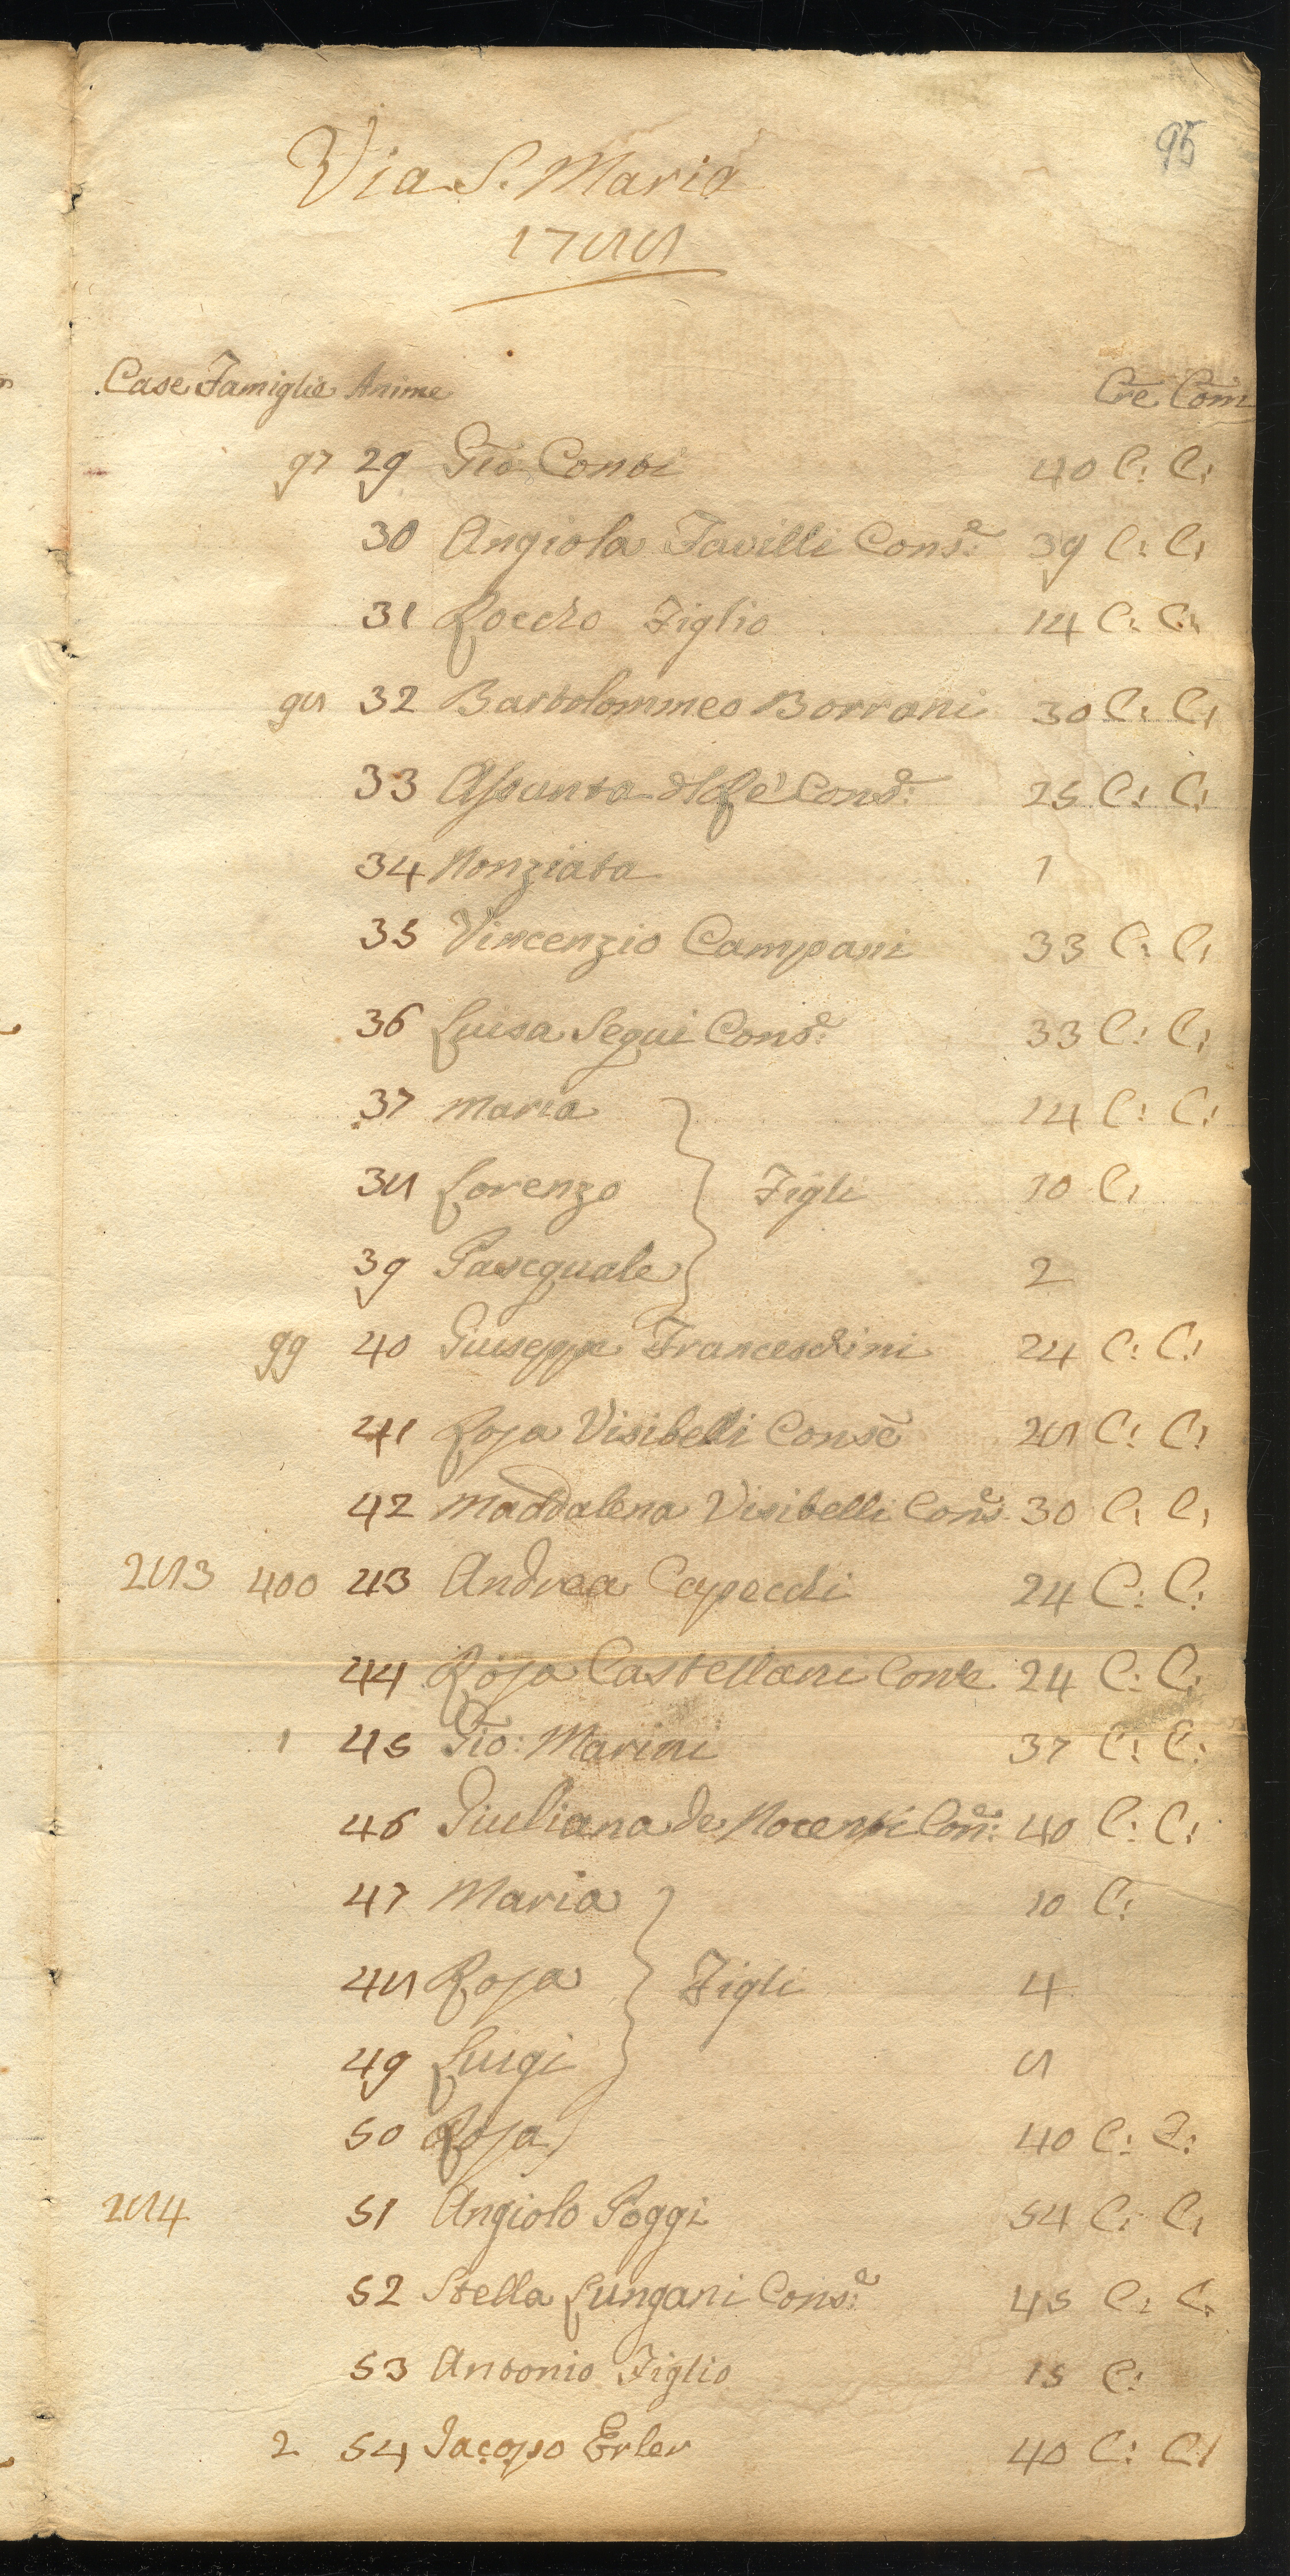 95
Via S. Maria
1788
Case Famiglie Anime Cre Com
97 29 Gio Conti 40 C: C:
30 Angiola Favilli Cons.e 39 C: C:
31 Roccho Figlio 14 C: C:
98 32 Bartolommeo Borrani 30 C: C:
33 Assunta del Re Cons.e 25 C: C:
34 Nonziata 1
35 Vincenzio Campani 33 C: C:
36 Luisa Segui Cons.e 33 C: C:
37 Maria 14 C: C:
38 Lorenzo Figli 10 C:
39 Pasequale 2
99 40 Giuseppe Franceschini 24 C: C:
41 Rosa Visibelli Conse 28 C: C:
42 Maddalena Visibelli Cons.e 30 C: C:
283 400 43 Andrea Capecchi 24 C: C:
44 Rosa Castellani Cons.e 24 C: C:
1 45 Gio: Marini 37 C: C:
46 Giuliana de Nocenti Con.e 40 C: C:
47 Maria 10 C:
48 Rosa Figli 4
49 Luigi 8
50 Rosa 40 C: C:
284 51 Angiolo Poggi 54 C: C:
52 Stella Lungani Cons.e 45 C: C:
53 Antonio Figlio 15 C:
2 54 Jacopo Erler 40 C: C: